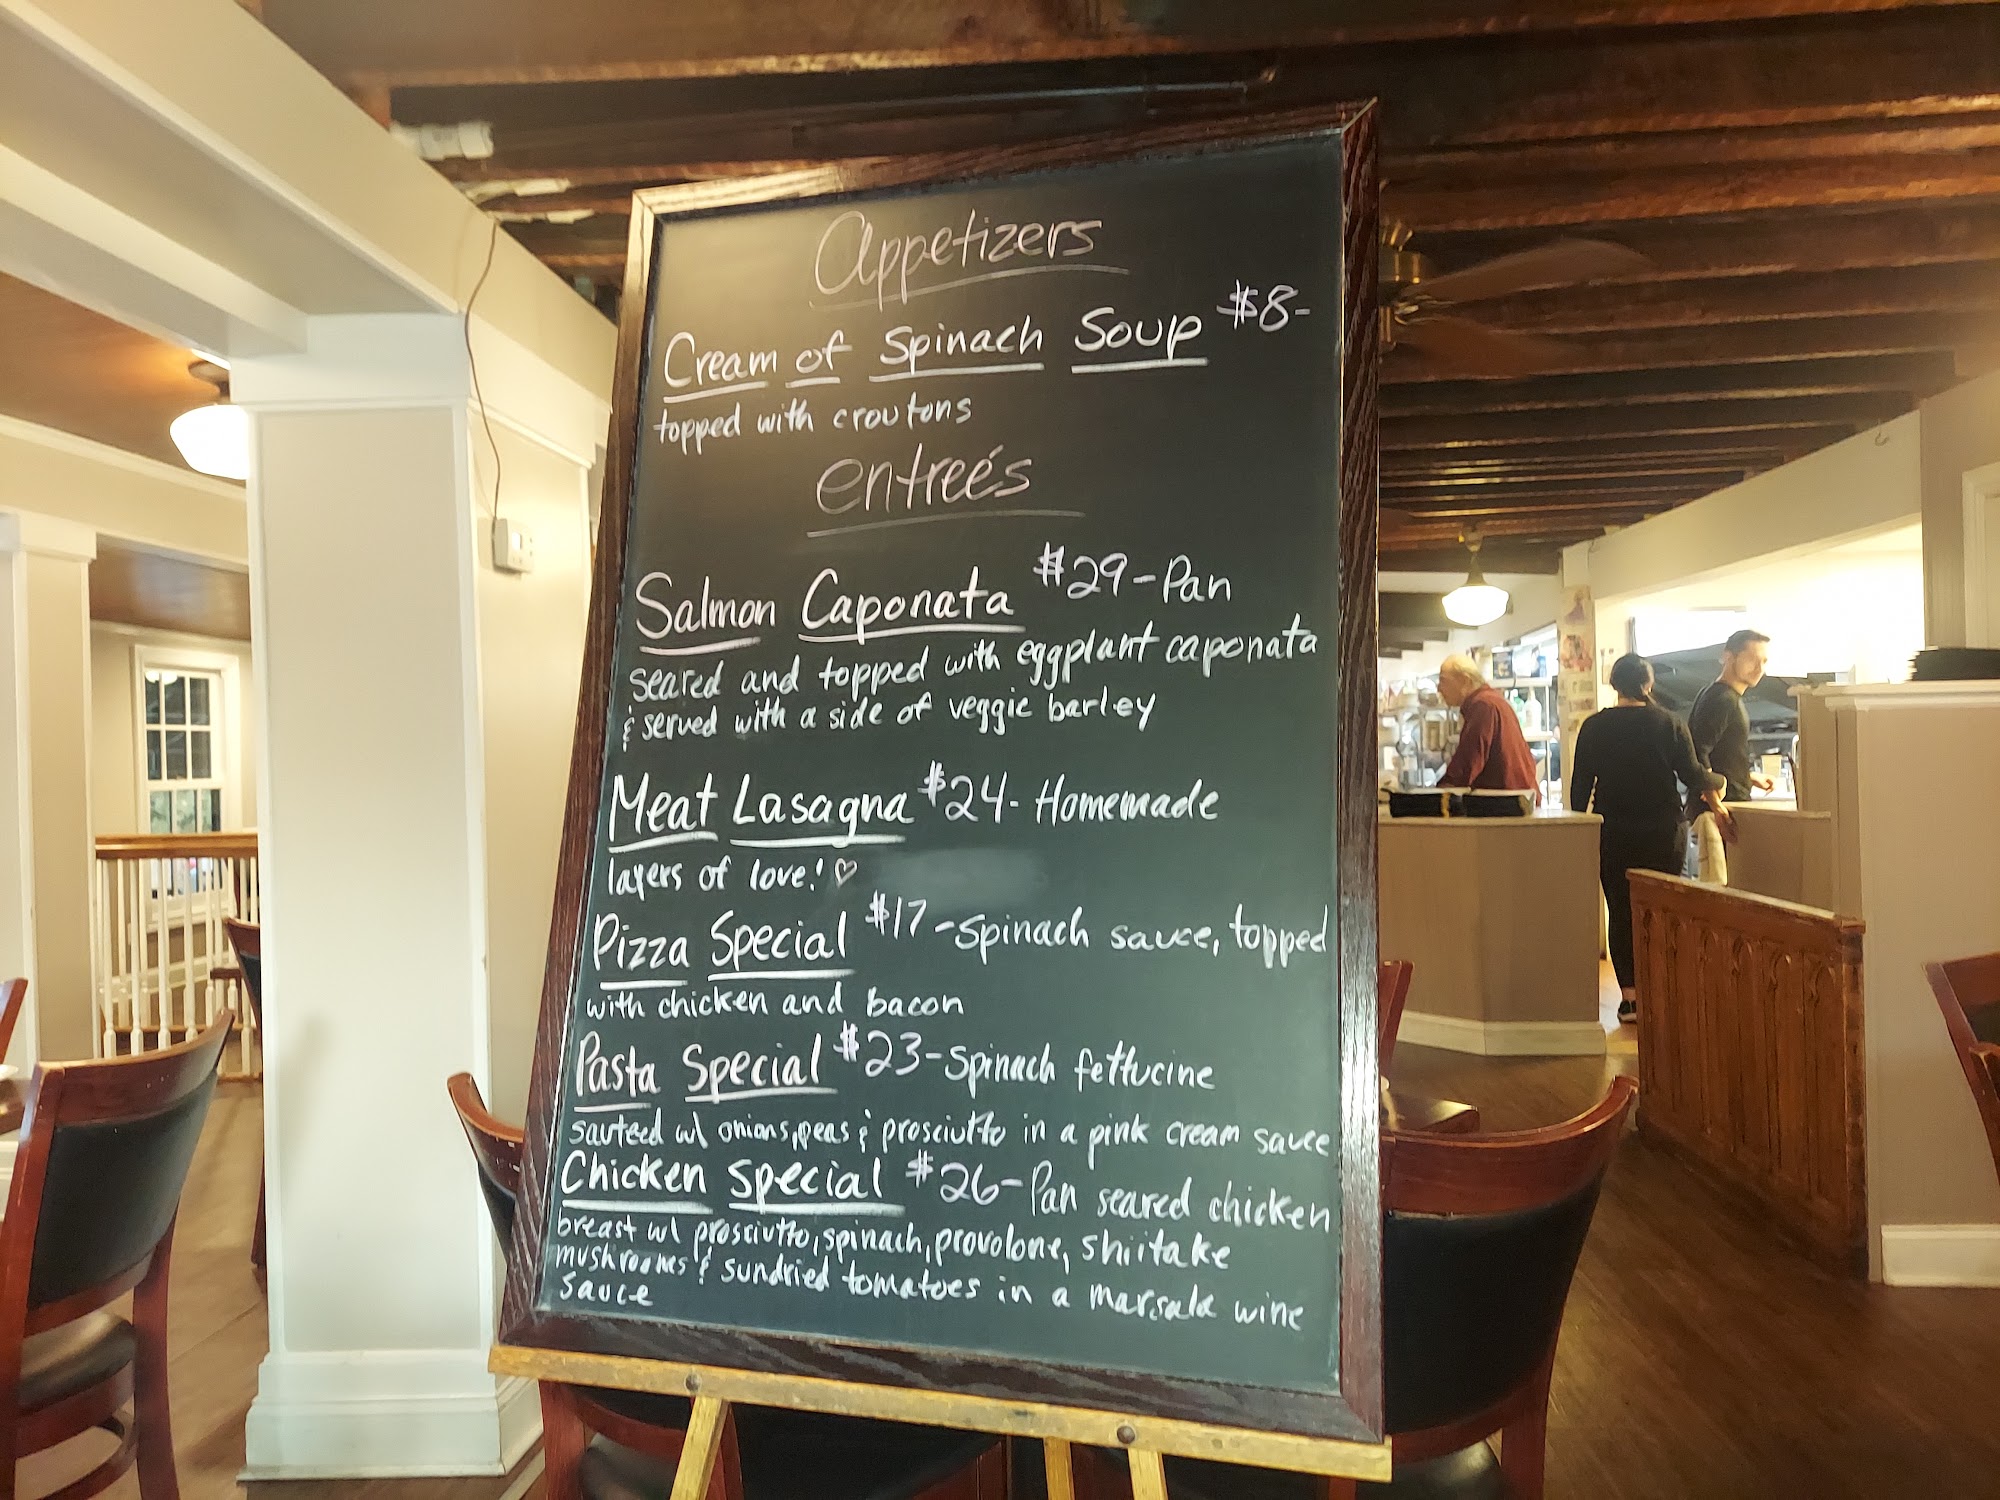 Appetizers
Cream of Spinach Soup $8-
topped with croutons
entreé's
Salmon Caponata $29-Pan
seared and topped with eggplant caponata
& served with a side of veggie barley
Meat Lasagna $24- Homemade
layers of love! ♡
Pizza Special $17-Spinach sauce, topped
with chicken and bacon
Pasta Special $23-Spinach fettucine
sauteed w/ onions, peas & prosciutto in a pink cream sauce
Chicken Special $26-Pan seared chicken
breast w/ prosciutto, spinach, provolone, shiitake
mushrooms & sundried tomatoes in a marsala wine
sauce